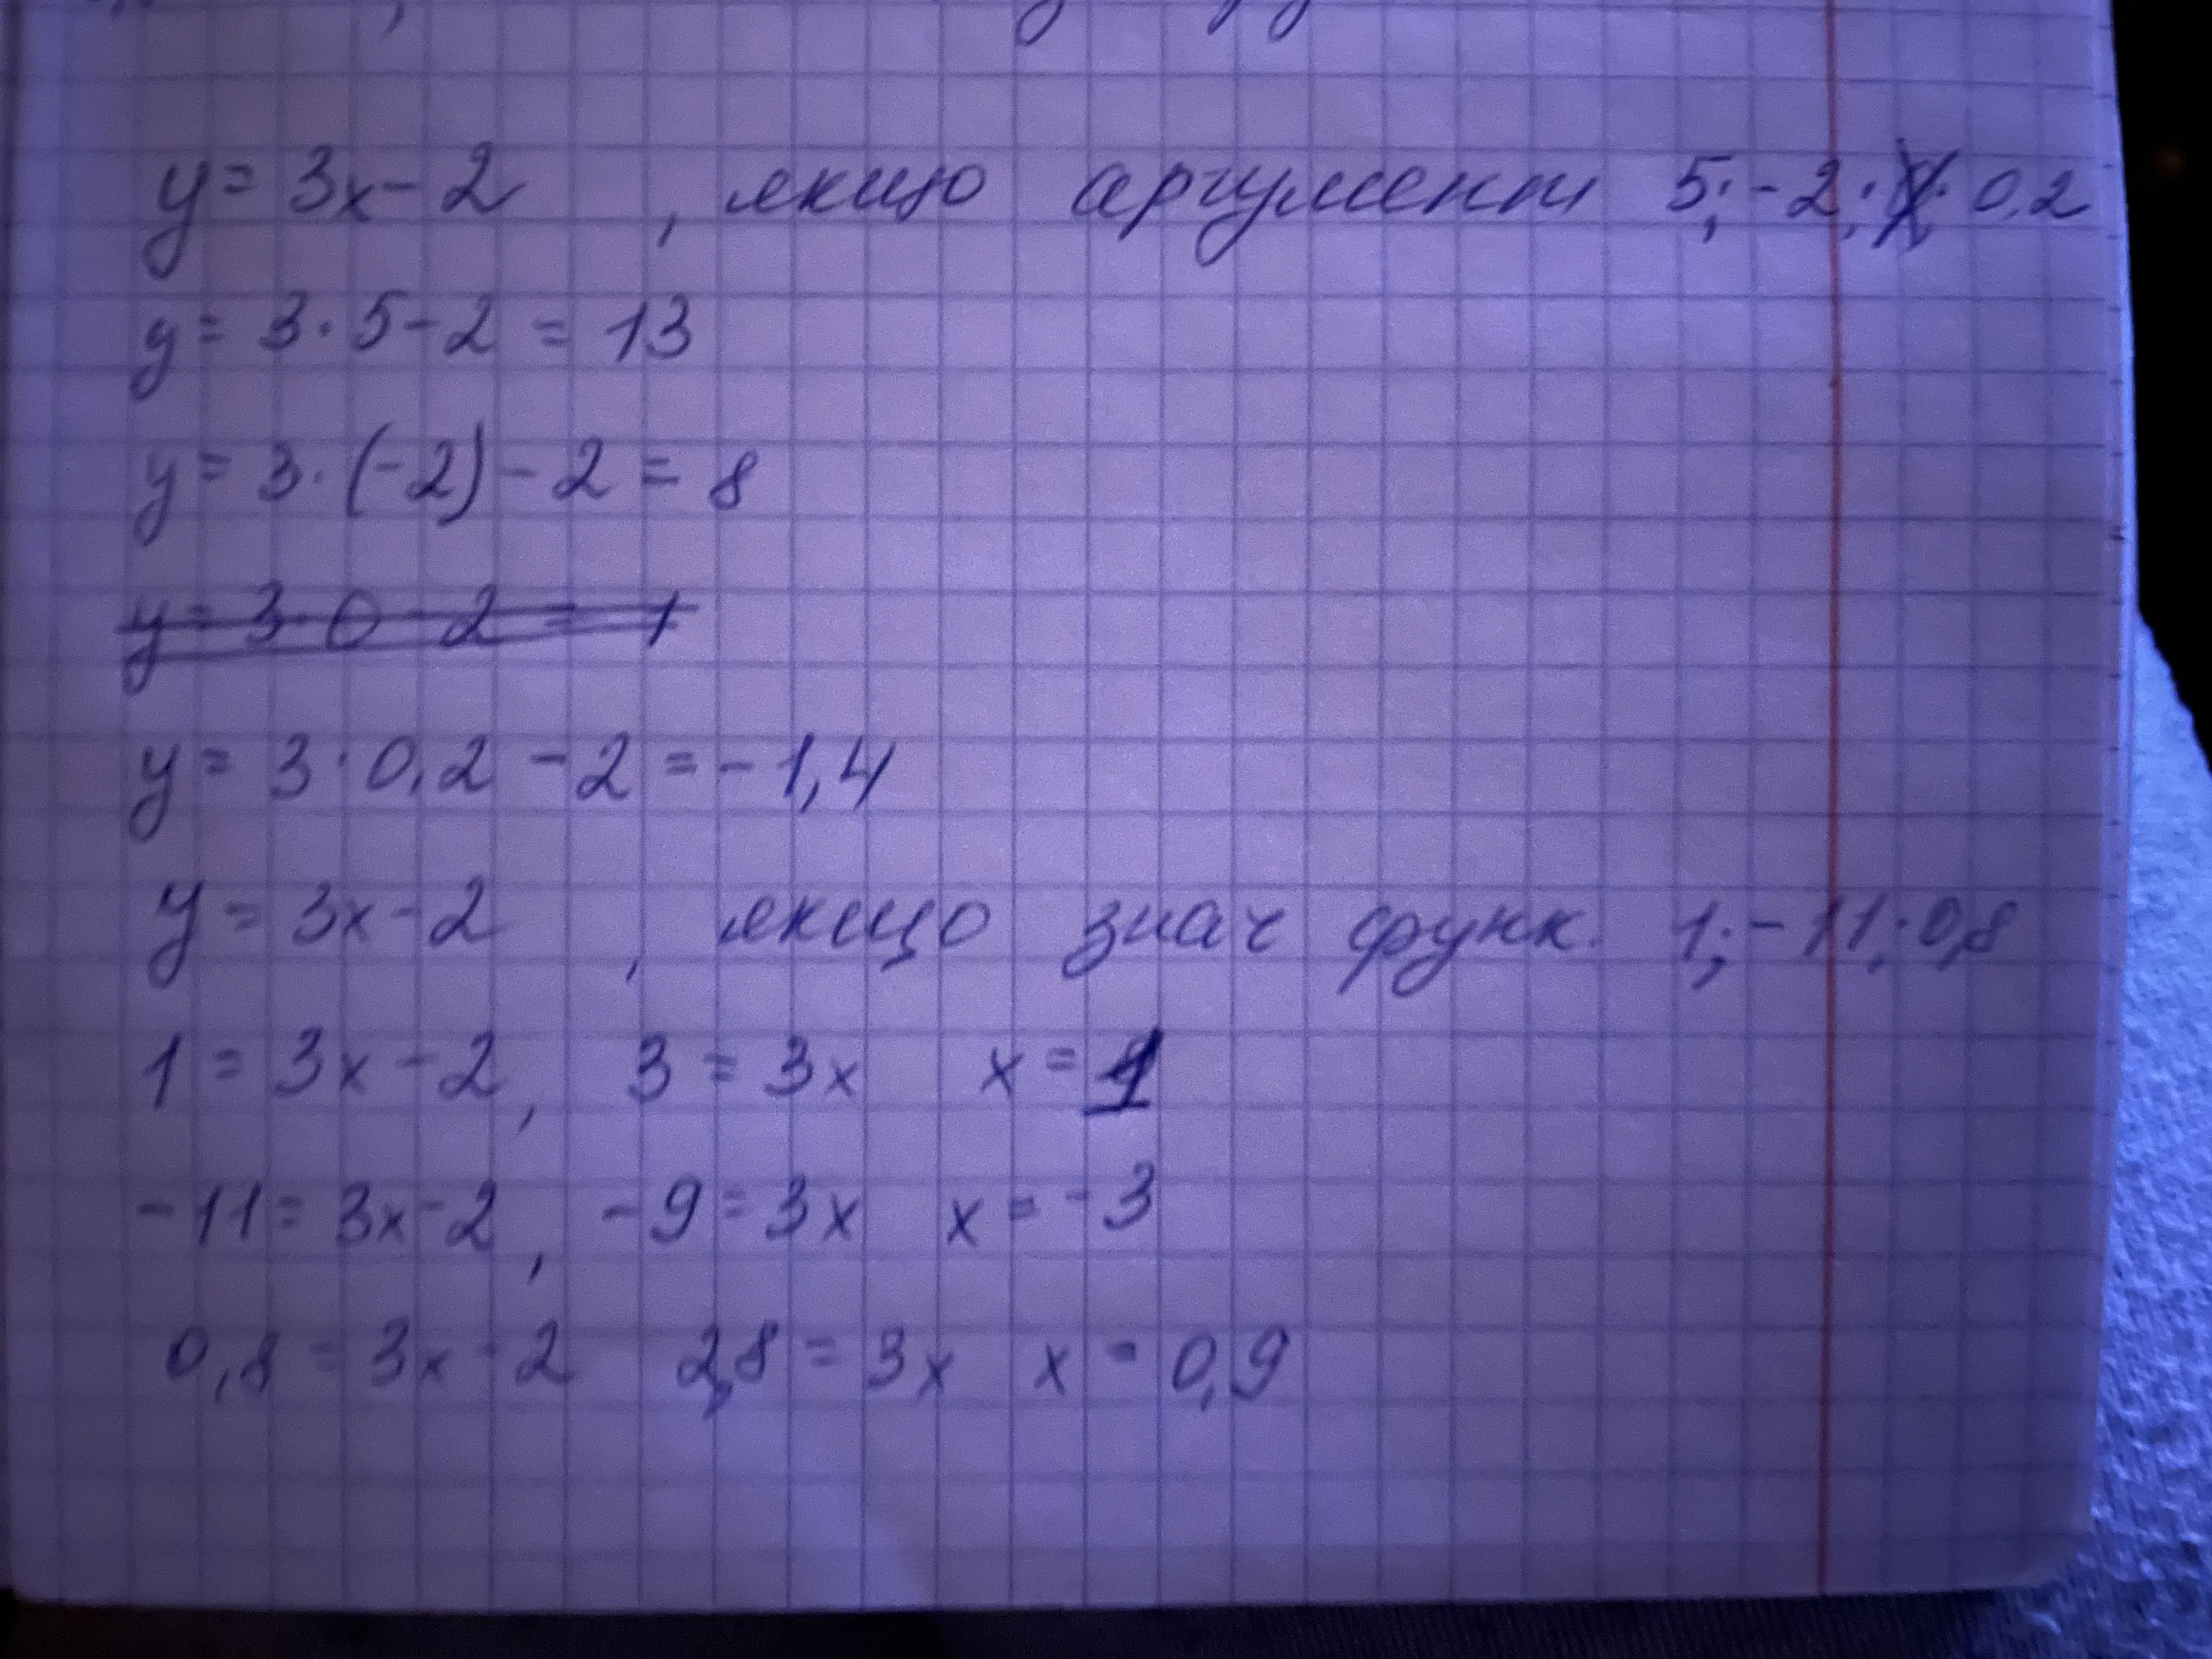 y = 3x - 2 , якщо аргумент 5; -2; 0,2
y = 3 · 5 - 2 = 13
y = 3 · (-2) - 2 = 8
y = 3 · 0 - 2 = 1
y = 3 · 0,2 - 2 = - 1,4
y = 3x - 2 , якщо знач функ. 1; - 11; 0,8
1 = 3x - 2, 3 = 3x x = 1
- 11 = 3x - 2, - 9 = 3x x = - 3
0,8 = 3x - 2 2,8 = 3x x = 0,9